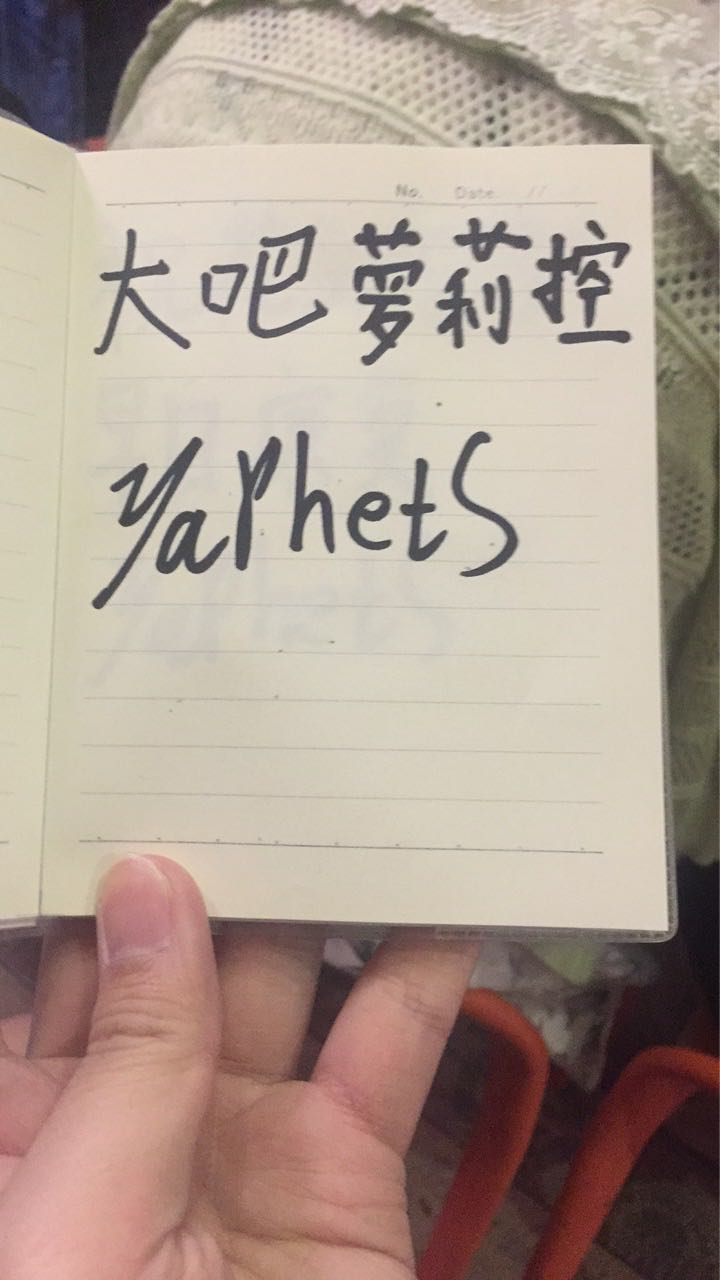 No. Date
大吧萝莉控
Yaphets